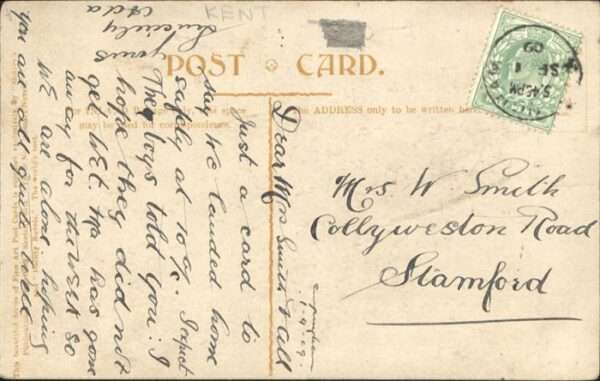 KENT
POST CARD.
The ADDRESS only to be written here
may be used for correspondence.
5.45 PM
SE 1
09
Mrs W. Smith
Collyweston Road
Stamford
1.9.09
Dear Mrs Smith & all
Just a card to
say we landed home
safely at 10 %. I expect
The boys told you. I
hope they did not
get wet. Ma has gone
away for the week so
we are alone. hoping
you are all quite well
yours
Sincerely
Ada